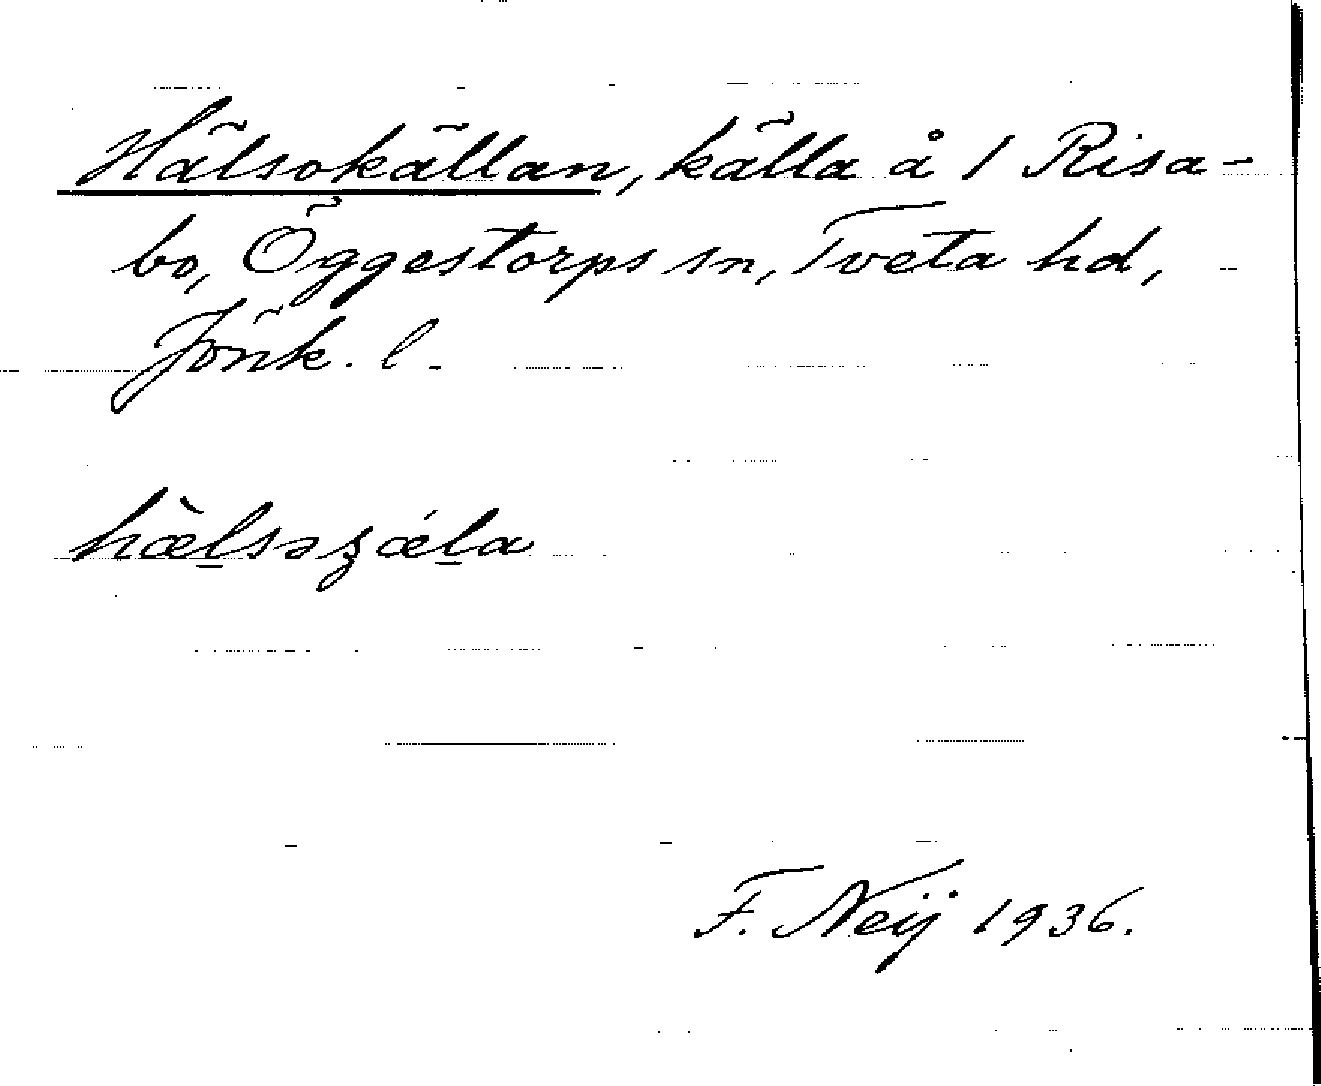 Hälsokällan, källa å 1 Risa-
bo, Öggestorps sn, Tveta hd,
Jönk. l.
hæ̀lsəʒǽla
F. Neij 1936.